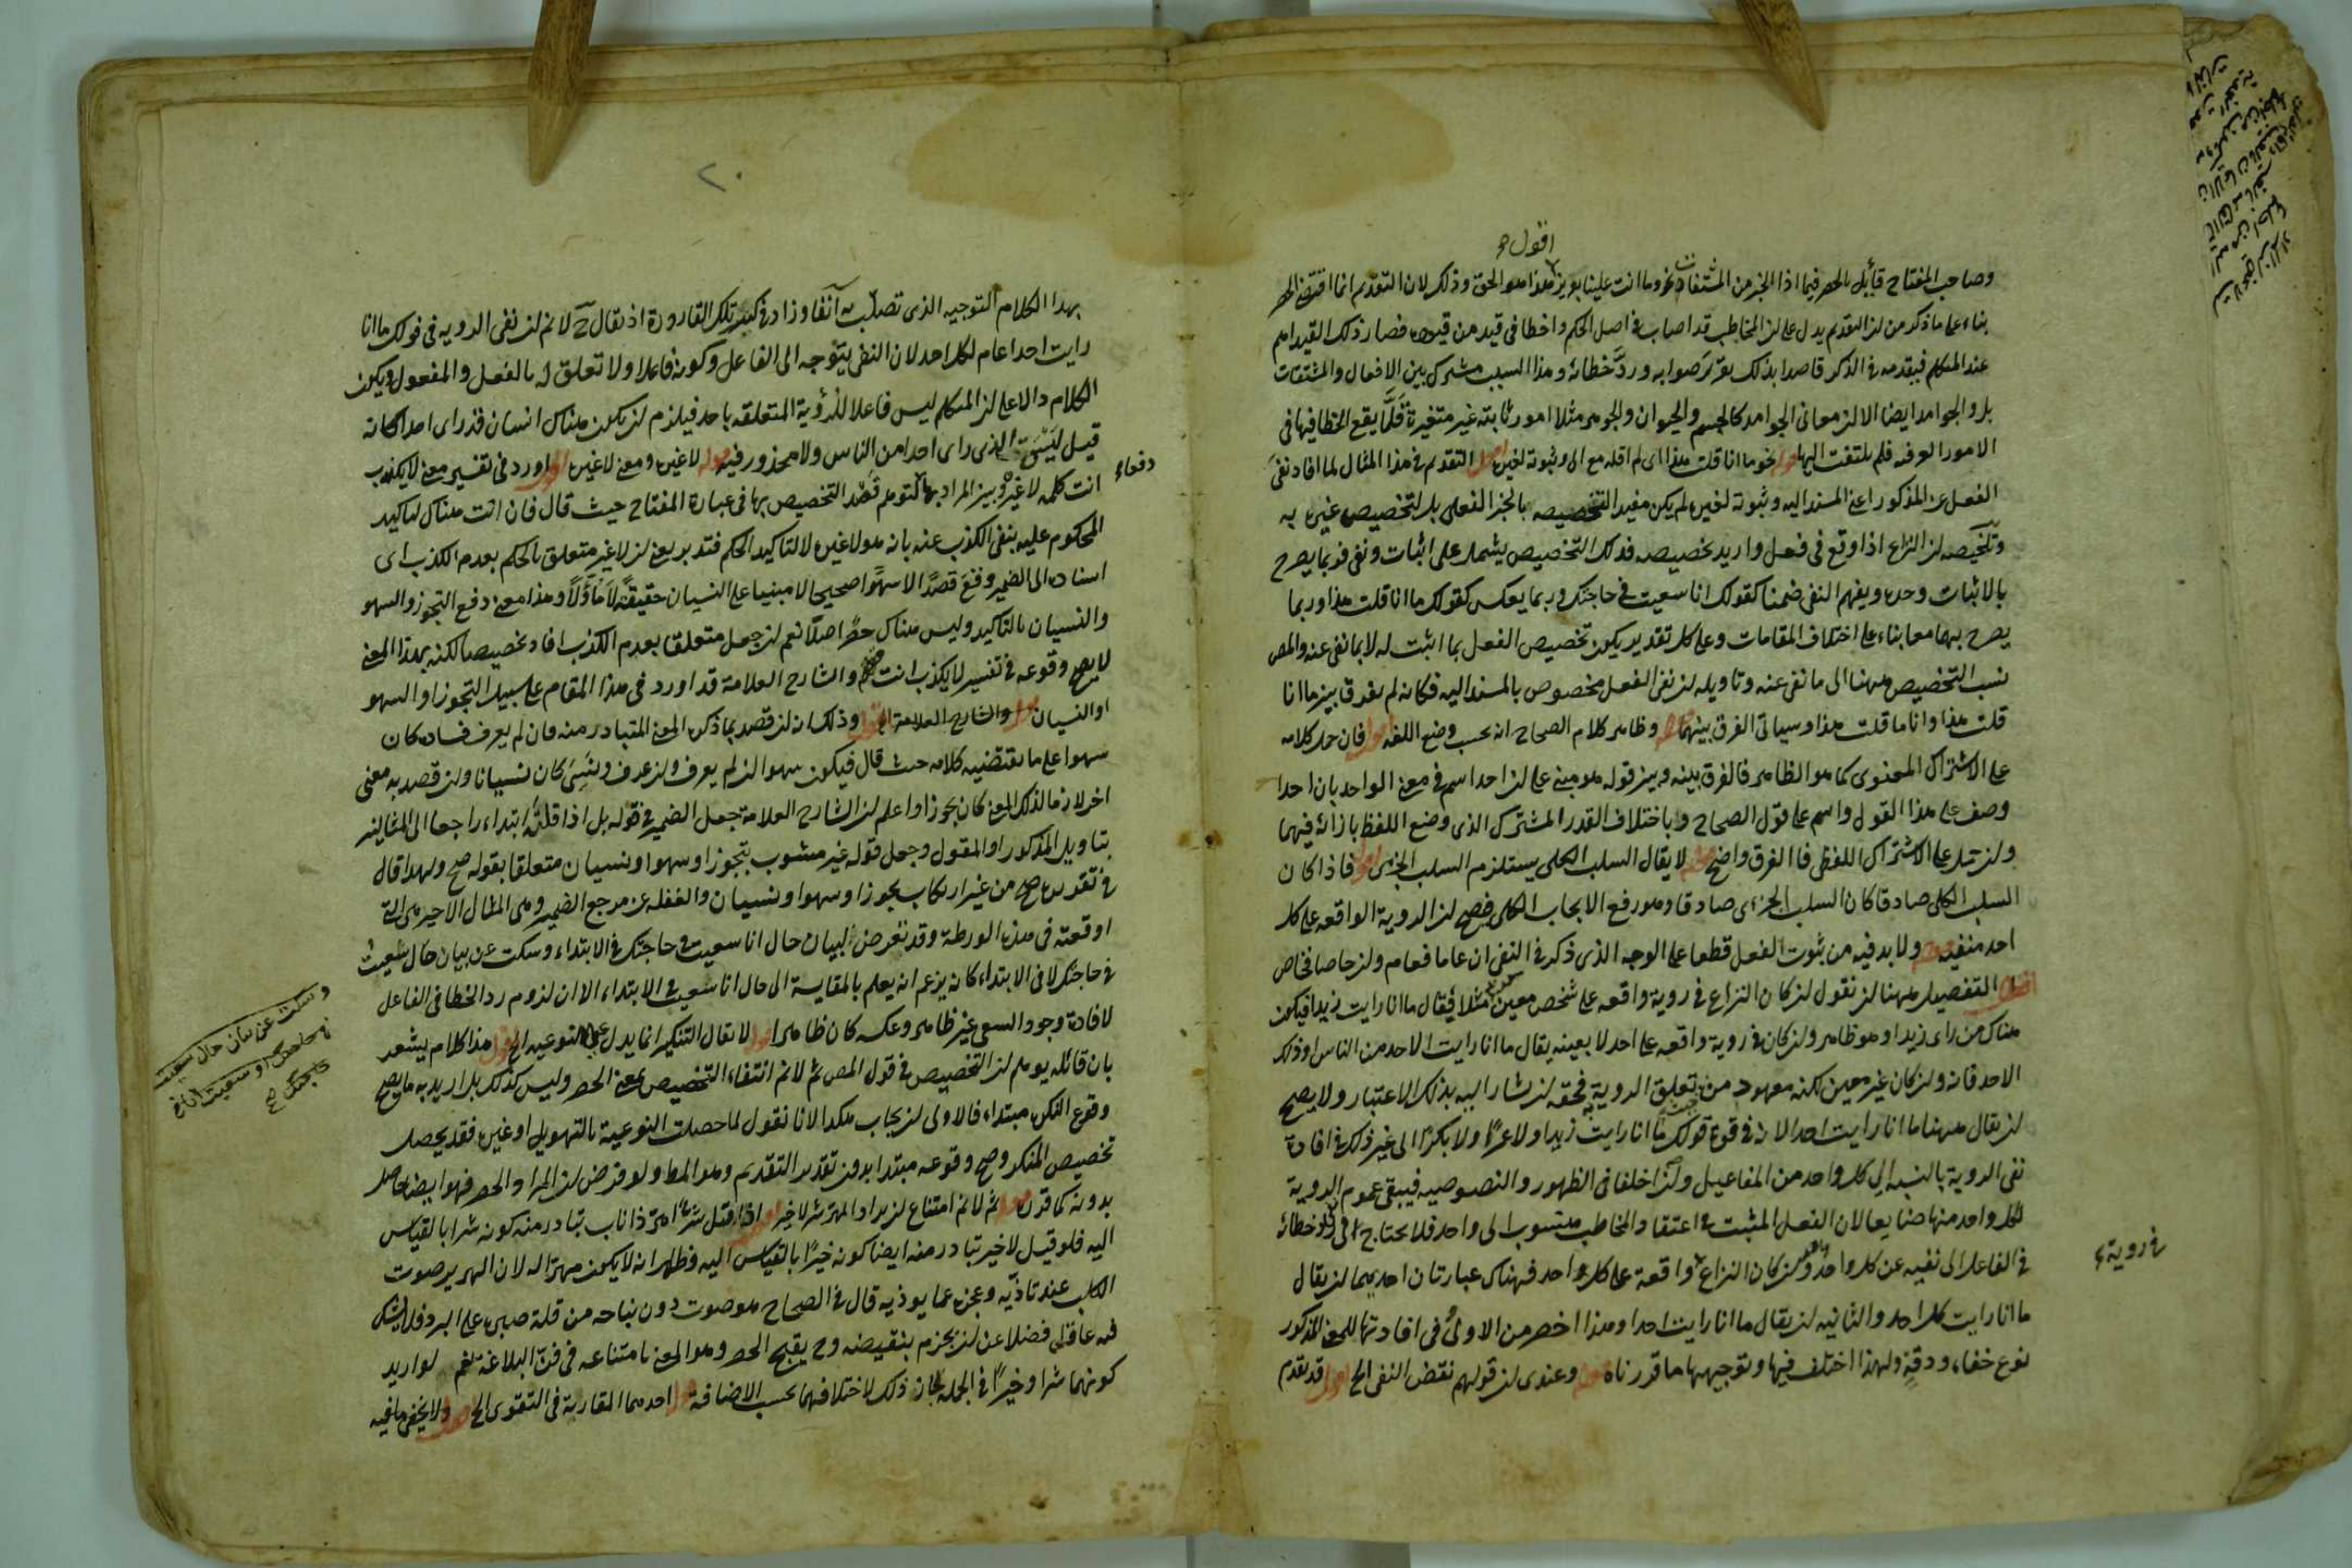 اقول
وصاحب المفتاح قائل بالحصر فيما اذا الخبر من المشتقات نحو وما انت علينا بعزيز هذا هو الحق وذلك لان التقديم انما اقتضى الحصر
بناء على ما ذكر من ان التقديم يدل على ان المخاطب قد اصاب في اصل الحكم واخطا في قيد من قيوده فصار ذلك القيد اهم
عند المتكلم فيقدمه في الذكر قاصدا بذلك تقرير صوابه ورد خطائه وهذا السبب مشترك بين الافعال والمشتقات
بل والجوامد ايضا الا ان معاني الجوامد كالجسم والحيوان والجوهر مثلا امور ثابتة غير متغيرة فلما يقع الخطا فيها في
الامور العرفيه فلم يلتفت اليها قوله نحو ما انا قلت هذا اى لم اقله مع انه وثبوته لغيره اقول التقديم في هذا المثال لما افاد نفى
الفعل عن المذكور اعنى المسند اليه وثبوته لغيره لم يكن مفيدا لتخصيصه بالخبر الفعلى بل لتخصيص غيره به
وتلخيصه ان النزاع اذا وقع في فعل واريد تخصيصه فذلك التخصيص يشتمل على اثبات ونفى فربما يصرح
بالاثبات وحده ويفهم النفى ضمنا كقولك انا سعيت في حاجتك وربما يعكس كقولك ما انا قلت هذا وربما
يصرح بهما معا بناء على اختلاف المقامات وعلى كل تقدير يكون تخصيص الفعل بما اثبت له لا بما نفى عنه والمص
نسب التخصيص ههنا الى ما نفى عنه وتاويله ان نفى الفعل مخصوص بالمسند اليه فكانه لم يفرق بين ما انا
قلت هذا وانا ما قلت هذا وسيأتى الفرق بينهما قوله وظاهر كلام الصحاح انه بحسب وضع اللغه اقول فان حمل كلامه
على الاشتراك المعنوى كما هو الظاهر فالفرق بينه وبين قوله هو مبنى على ان احدا اسم في معنى الواحد بان احدا
وصف على هذا القول واسم على قول الصحاح وباختلاف القدر المشترك الذى وضع اللفظ بازائه فيهما
وان حمل على الاشتراك اللفظى فالفرق واضح قوله لا يقال السلب الكلى يستلزم السلب الجزئى اقول فاذا كان
السلب الكلى صادقا كان السلب الجزئى صادقا وهو رفع الايجاب الكلى فصح ان الروية الواقعه على كل
احد منفيه قوله ولا بد فيه من ثبوت الفعل قطعا على الوجه الذى ذكر في النفى ان عاما فعام وان خاصا فخاص
اقول التفصيل ههنا ان نقول ان كان النزاع في روية واقعه على شخص معين مثلا فيقال ما انا رايت زيدا فيكون
هناك من راى زيدا وهو ظاهر وان كان في روية واقعه على احد لا بعينه يقال ما انا رايت الاحد من الناس او ذلك
الاحد فانه وان كان غير معين لكنه معهود من حيث تعلق الروية به فحقه ان يشار اليه بذلك الاعتبار ولا يصح
ان يقال ههنا ما انا رايت احدا لانه في قوة قولك ما انا رايت زيدا ولا عمرا ولا بكرا الى غير ذلك في افادة
نفى الروية بالنسبه الى كل واحد من المفاعيل وان اختلفا في الظهور والنصوصيه فيبقى عموم الروية
لكل واحد منها ضايعا لان الفعل المثبت في اعتقاد المخاطب منسوب الى واحد فلا يحتاج في رد خطائه
في الفاعل الى نفيه عن كل واحد واحد وان كان النزاع في روية واقعة على كل واحد فهناك عبارتان احديهما ان يقال
ما انا رايت كل احد والثانيه ان يقال ما انا رايت احدا وهذا اخصر من الاولى وفى افادتها للمعنى المذكور
نوع خفاء ودقة ولهذا اختلف فيها وتوجيهها ما قررناه قوله وعندى ان قولهم نقض النفى الخ اقول قد تقدم
٢٠
بهذا الكلام التوجيه الذى تصلب به آنفا وزاد في كسر تلك القارورة اذ يقال ح لا نم ان نفى الروية في قولك ما انا
رايت احدا عام لكل احد لان النفى يتوجه الى الفاعل وكونه فاعلا ولا تعلق له بالفعل والمفعول ويكون
الكلام دالا على ان المتكلم ليس فاعلا للرؤية المتعلقه باحد فيلزم ان يكون هناك انسان قد راى احدا كانه
قيل ليست الذى راى احدا من الناس ولا محذور فيه قوله لا غيرى ومعنى لا غيرى اقول اورد في تفسير معنى لا يكذب
دفعا
انت كلمه لا غيره وبين المراد بها لتوهم قصد التخصيص بها في عبارة المفتاح حيث قال فان انت هناك لتاكيد
المحكوم عليه بنفى الكذب عنه بانه هو لا غيره لا لتاكيد الحكم فتدبر يعنى ان لا غير متعلق بالحكم بعدم الكذب اى
اسناده الى الضمير وقع قصدا لا سهوا صحيحا لا مبنيا على النسيان حقيقة لا مأولا وهذا معنى دفع التجوز والسهو
والنسيان بالتاكيد وليس هناك حصر اصلا نعم ان جعل متعلقا بعدم الكذب افاد تخصيصا لكنه بهذا المعنى
لا يصح وقوعه في تفسير لا يكذب انت والشارح العلامة قد اورد في هذا المقام على سبيل التجوز او السهو
او النسيان قوله والشارح العلامة الخ اقول وذلك انه ان قصد بما ذكره المعنى المتبادر منه فان لم يعرف فساده كان
سهوا على ما يقتضيه كلامه حيث قال فيكون سهوا ان لم يعرف وان عرف ونسى كان نسيانا وان قصد به معنى
اخر لازما لذلك المعنى كان تجوزا واعلم ان الشارح العلامة جعل الضمير في قوله بل اذا قلته ابتداء راجعا الى المثالين
بتاويل المذكور او المقول وجعل قوله غير مشوب بتجوز او سهو او نسيان متعلقا بقوله صح ولهذا قال
في تقديره صح من غير ارتكاب تجوز او سهو او نسيان والغفله عن مرجع الضمير وهى المثال الاخير هى التى
اوقعته في هذه الورطة وقد تعرض لبيان حال انا سعيت في حاجتك في الابتداء وسكت عن بيان حال سعيت
في حاجتك لا في الابتداء كانه يزعم انه يعلم بالمقايسة الى حال انا سعيت في الابتداء الا ان لزوم رد الخطا في الفاعل
لافادة وجود السعى غير ظاهر وعكسه كان ظاهرا قوله لا يقال التنكير انما يدل على النوعيه الخ اقول هذا كلام يشعر
بان قائله يوهم ان التخصيص في قول المص ثم لا نم انتفاء التخصيص بمعنى الحصر وليس كذلك بل اريد به ما يصح
وقوع النكره مبتداء فالاولى ان يجاب هكذا لانا نقول لما حصلت النوعية بالتهويل او غيره فقد يحصل
تخصيص المنكر وصح وقوعه مبتدا بدون تقدير التقديم وهو المط ولو فرض ان المراد الحصر فهو ايضا حاصل
بدونه كما قرن قوله ثم لا نم امتناع ان يراد المهر شر لا خير اقول اذا قيل شر اهر ذا ناب تبادر منه كونه شرا بالقياس
اليه فلو قيل لا خير تبادر منه ايضا كونه خيرا بالقياس اليه وظهر انه لا يكون مهرا له لان الهرير صوت
الكلب عند تاذيه وعجزه عما يوذيه قال في الصحاح هو صوت دون نباحه من قلة صبره على البرد فلا يشك
فيه عاقل فضلا عن ان يجزم بنقيضه وح يقبح الحصر وهو المعنى بامتناعه في فن البلاغة نعم لو اريد
كونهما شرا وخيرا في الجملة لجاز ذلك لاختلافهما بحسب الاضافة قوله احدهما المقاربة في التقوى الخ اقول ولا يخفى ما فيه
وسكت عن بيان حال سعيت
في حاجتك
في روية